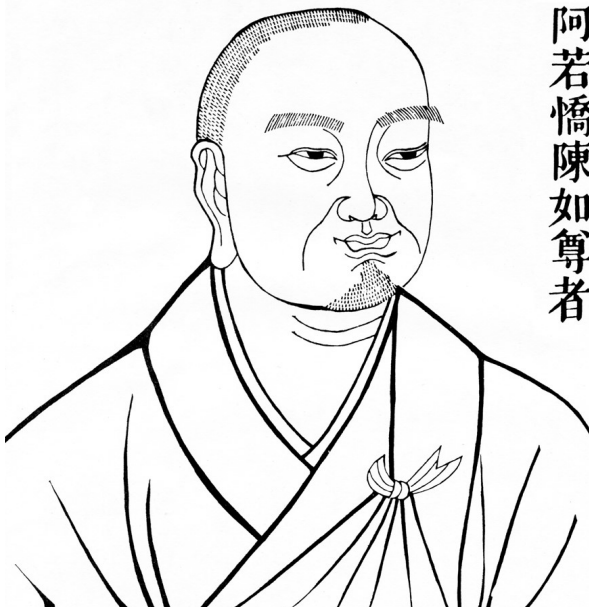 阿若憍陳如尊者